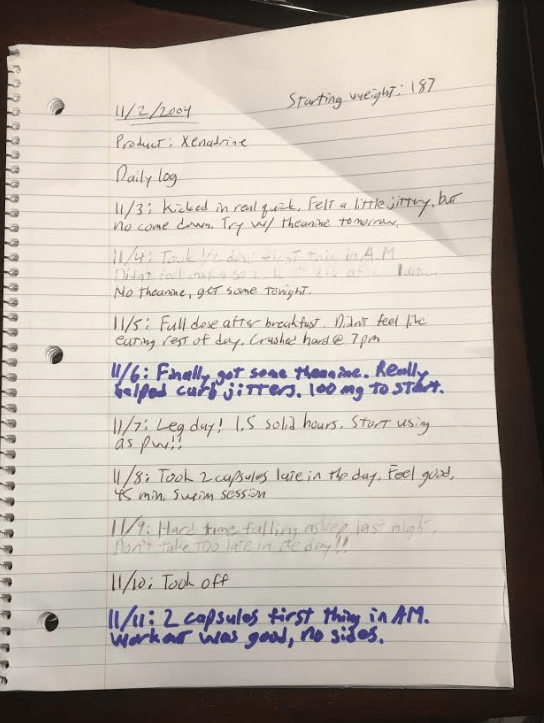 Starting weight: 187
11/2/2004
Product: Xenadrine
Daily log
11/3: Kicked in real quick. Felt a little jittery, but
no come down. Try w/ theanine tomorrow.
11/4: Took 1/2 dose first thing in A.M
Didn't
No theanine, get some tonight.
11/5: Full dose after breakfast. Didn't feel like
eating rest of day. Crashed hard @ 7pm
11/6: Finally got some theanine. Really
helped curb jitters. 100 mg to start.
11/7: Leg day! 1.5 solid hours. Start using
as pw!!
11/8: Took 2 capsules late in the day. Feel good,
45 min. swim session
11/9: Hard time falling asleep last night.
Don't take TOO late in the day!!
11/10: Took off
11/11: 2 capsules first thing in AM.
Workout was good, no sides.